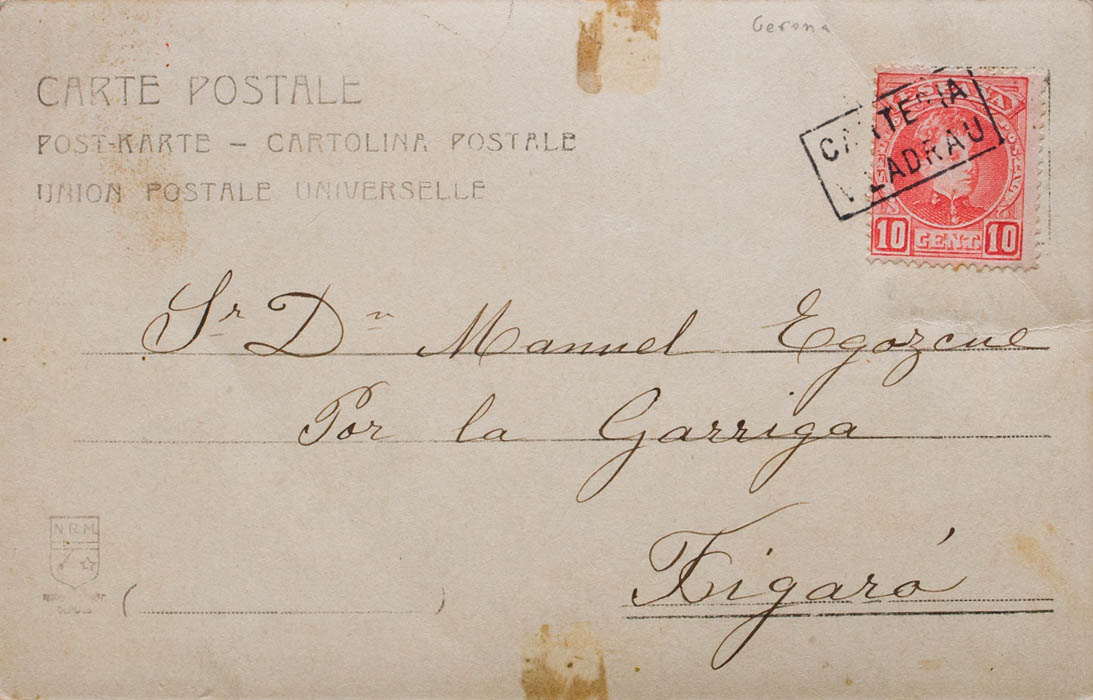 Gerona
CARTE POSTALE
POST-KARTE – CARTOLINA POSTALE
UNION POSTALE UNIVERSELLE
ESPAÑA
CARTERIA
VILADRAU
10 CENT 10
Sr Dn Manuel Egozcue
Por la Garriga
Figaró
N.R.M.
( )